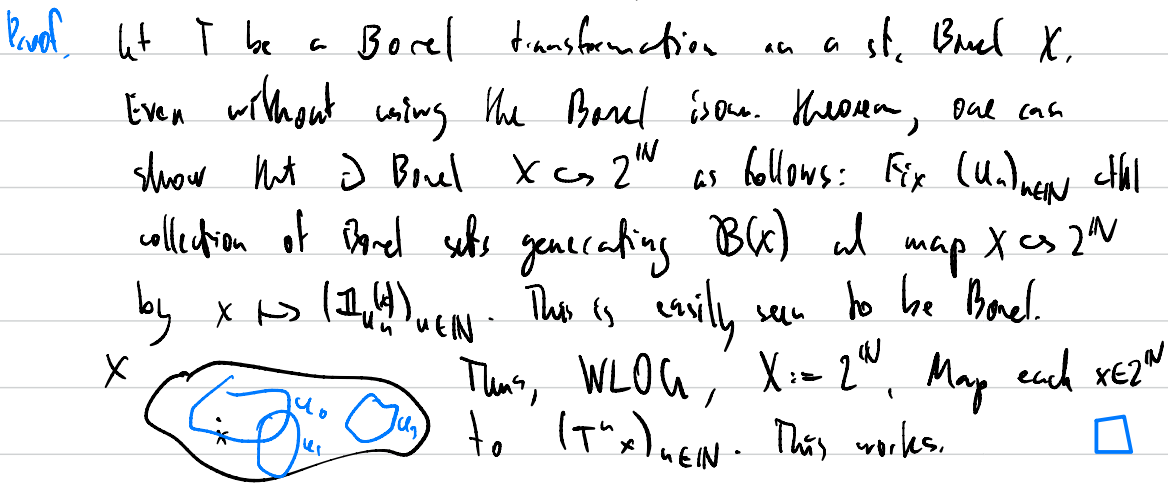 Proof. Let T be a Borel transformation on a st. Borel X.
Even without using the Borel isom. theorem, one can
show that ∃ Borel X ↪ 2^ℕ as follows: Fix (Uₙ)ₙ∈ℕ ctbl
collection of Borel sets generating 𝔅(X) and map X ↪ 2^ℕ
by x ↦ (𝟙_{Uₙ}(x))ₙ∈ℕ. This is easily seen to be Borel.
X Thus, WLOG, X := 2^ℕ. Map each x∈2^ℕ
x U₀ U₁ U₂ to (Tⁿx)ₙ∈ℕ. This works. □